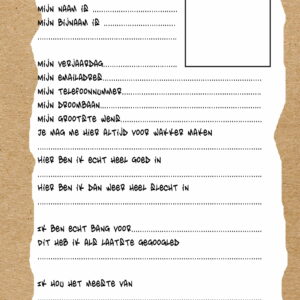 Mijn naam is
Mijn bijnaam is
Mijn verjaardag
Mijn emailadres
Mijn telefoonnummer
Mijn droombaan
Mijn grootste wens
Je mag me hier altijd voor wakker maken
Hier ben ik echt heel goed in
Hier ben ik dan weer heel slecht in
Ik ben echt bang voor
Dit heb ik als laatste gegoogled
Ik hou het meeste van